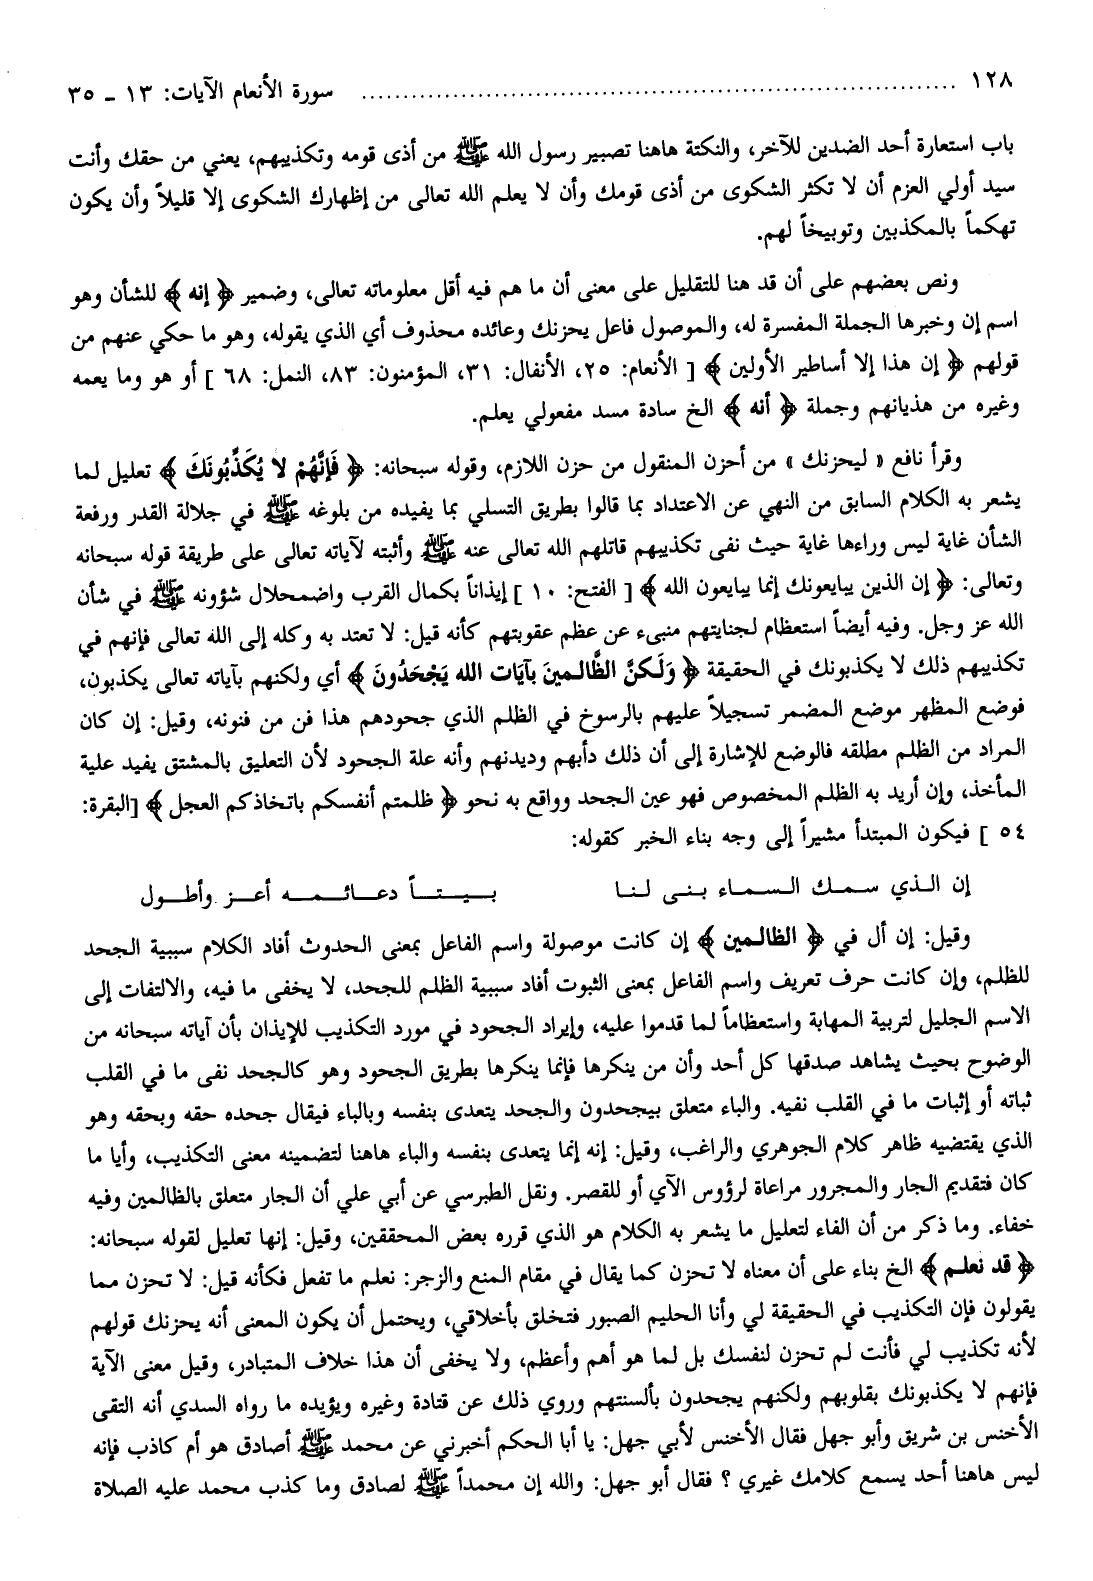 ١٢٨ ........ سورة الأنعام الآيات: ١٣ ـ ٣٥
باب استعارة أحد الضدين للآخر، والنكتة هاهنا تصبير رسول الله ﷺ من أذى قومه وتكذيبهم، يعني من حقك وأنت
سيد أولي العزم أن لا تكثر الشكوى من أذى قومك وأن لا يعلم الله تعالى من إظهارك الشكوى إلا قليلاً وأن يكون
تهكماً بالمكذبين وتوبيخاً لهم.
ونص بعضهم على أن قد هنا للتقليل على معنى أن ما هم فيه أقل معلوماته تعالى، وضمير ﴿ إنه ﴾ للشأن وهو
اسم إن وخبرها الجملة المفسرة له، والموصول فاعل يحزنك وعائده محذوف أي الذي يقوله، وهو ما حكي عنهم من
قولهم ﴿ إن هذا إلا أساطير الأولين ﴾ [ الأنعام: ٢٥، الأنفال: ٣١، المؤمنون: ٨٣، النمل: ٦٨ ] أو هو وما يعمه
وغيره من هذيانهم وجملة ﴿ أنه ﴾ الخ سادة مسد مفعولي يعلم.
وقرأ نافع « ليحزنك » من أحزن المنقول من حزن اللازم، وقوله سبحانه: ﴿ فَإِنَّهُمْ لا يُكَذِّبُونَكَ ﴾ تعليل لما
يشعر به الكلام السابق من النهي عن الاعتداد بما قالوا بطريق التسلي بما يفيده من بلوغه ﷺ في جلالة القدر ورفعة
الشأن غاية ليس وراءها غاية حيث نفى تكذيبهم قاتلهم الله تعالى عنه ﷺ وأثبته لآياته تعالى على طريقة قوله سبحانه
وتعالى: ﴿ إن الذين يبايعونك إنما يبايعون الله ﴾ [ الفتح: ١٠ ] إيذاناً بكمال القرب واضمحلال شؤونه ﷺ في شأن
الله عز وجل. وفيه أيضاً استعظام لجنايتهم منبىء عن عظم عقوبتهم كأنه قيل: لا تعتد به وكله إلى الله تعالى فإنهم في
تكذيبهم ذلك لا يكذبونك في الحقيقة ﴿ وَلَكنَّ الظَّالـمينَ بآيَات الله يَجْحَدُونَ ﴾ أي ولكنهم بآياته تعالى يكذبون،
فوضع المظهر موضع المضمر تسجيلاً عليهم بالرسوخ في الظلم الذي جحودهم هذا فن من فنونه، وقيل: إن كان
المراد من الظلم مطلقه فالوضع للإشارة إلى أن ذلك دأبهم وديدنهم وأنه علة الجحود لأن التعليق بالمشتق يفيد علية
المأخذ، وإن أريد به الظلم المخصوص فهو عين الجحد وواقع به نحو ﴿ ظلمتم أنفسكم باتخاذكم العجل ﴾ [البقرة:
٥٤ ] فيكون المبتدأ مشيراً إلى وجه بناء الخبر كقوله:
إن الـذي سـمـك الـسـمـاء بـنـى لـنـا بـيـتـاً دعـائـمـه أعـز وأطـول
وقيل: إن أل في ﴿ الظالمين ﴾ إن كانت موصولة واسم الفاعل بمعنى الحدوث أفاد الكلام سببية الجحد
للظلم، وإن كانت حرف تعريف واسم الفاعل بمعنى الثبوت أفاد سببية الظلم للجحد، لا يخفى ما فيه، والالتفات إلى
الاسم الجليل لتربية المهابة واستعظاماً لما قدموا عليه، وإيراد الجحود في مورد التكذيب للإيذان بأن آياته سبحانه من
الوضوح بحيث يشاهد صدقها كل أحد وأن من ينكرها فإنما ينكرها بطريق الجحود وهو كالجحد نفى ما في القلب
ثباته أو إثبات ما في القلب نفيه. والباء متعلق بيجحدون والجحد يتعدى بنفسه وبالباء فيقال جحده حقه وبحقه وهو
الذي يقتضيه ظاهر كلام الجوهري والراغب، وقيل: إنه إنما يتعدى بنفسه والباء هاهنا لتضمينه معنى التكذيب، وأيا ما
كان فتقديم الجار والمجرور مراعاة لرؤوس الآي أو للقصر. ونقل الطبرسي عن أبي علي أن الجار متعلق بالظالمين وفيه
خفاء. وما ذكر من أن الفاء لتعليل ما يشعر به الكلام هو الذي قرره بعض المحققين، وقيل: إنها تعليل لقوله سبحانه:
﴿ قد نعلم ﴾ الخ بناء على أن معناه لا تحزن كما يقال في مقام المنع والزجر: نعلم ما تفعل فكأنه قيل: لا تحزن مما
يقولون فإن التكذيب في الحقيقة لي وأنا الحليم الصبور فتخلق بأخلاقي، ويحتمل أن يكون المعنى أنه يحزنك قولهم
لأنه تكذيب لي فأنت لم تحزن لنفسك بل لما هو أهم وأعظم، ولا يخفى أن هذا خلاف المتبادر، وقيل معنى الآية
فإنهم لا يكذبونك بقلوبهم ولكنهم يجحدون بألسنتهم وروي ذلك عن قتادة وغيره ويؤيده ما رواه السدي أنه التقى
الأخنس بن شريق وأبو جهل فقال الأخنس لأبي جهل: يا أبا الحكم أخبرني عن محمد ﷺ أصادق هو أم كاذب فإنه
ليس هاهنا أحد يسمع كلامك غيري ؟ فقال أبو جهل: والله إن محمداً ﷺ لصادق وما كذب محمد عليه الصلاة